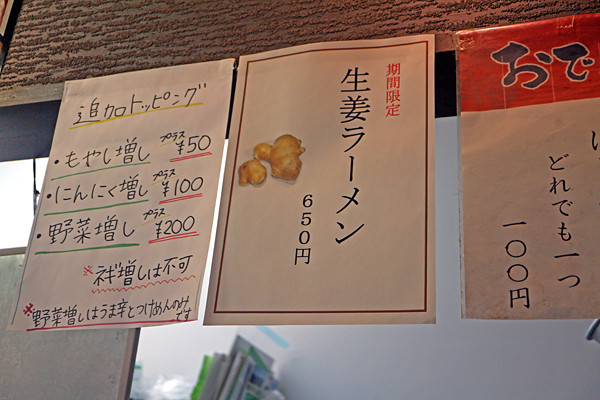 追加トッピング
・もやし増し プラス ¥50
・にんにく増し プラス ¥100
・野菜増し プラス ¥200
※ネギ増しは不可
※野菜増しはうま辛とつけめんのみです
期間限定
生姜ラーメン
650円
おで
どれでも一つ
一〇〇円